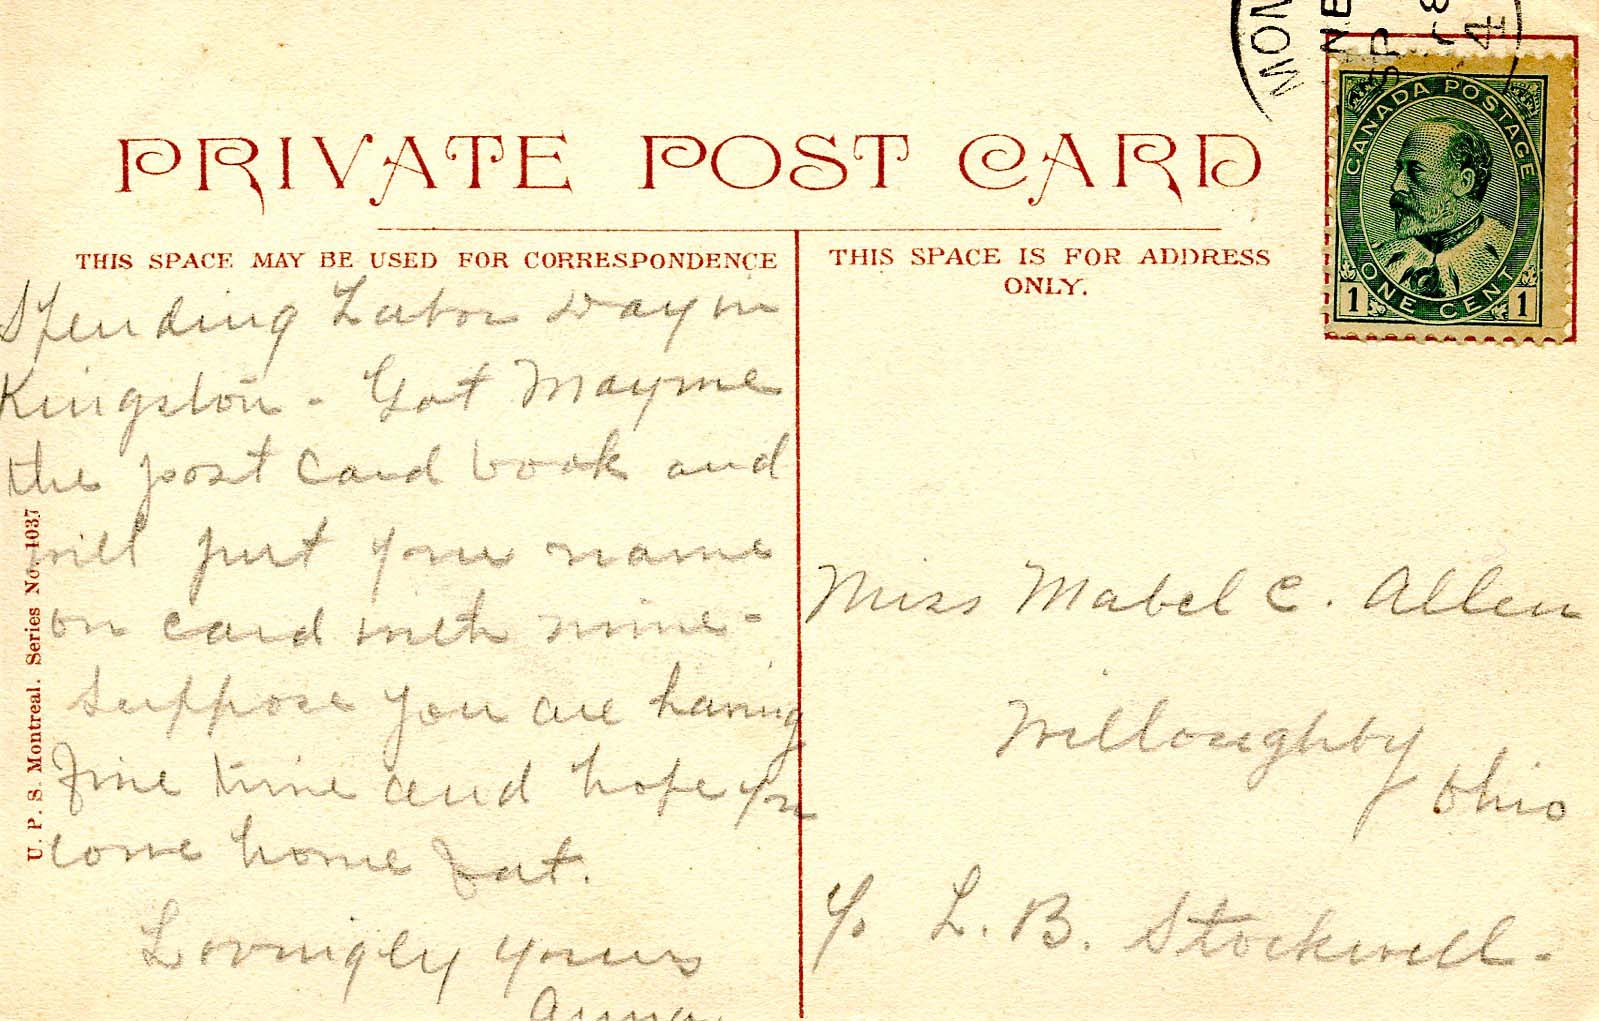 MON
NE
SP
8
4
CANADA POSTAGE
ONE CENT
1 1
PRIVATE POST CARD
THIS SPACE MAY BE USED FOR CORRESPONDENCE
THIS SPACE IS FOR ADDRESS
ONLY.
Spending Labor Day in
Kingston - Got Mayme
the post card book and
will put your name
on card with mine -
Suppose you are having
fine time and hope you
come home fat.
Lovingly yours
Anna.
U. P. S. Montreal. Series No. 1037
Miss Mabel C. Allen
Willoughby
Ohio
c/o L. B. Stockwell.